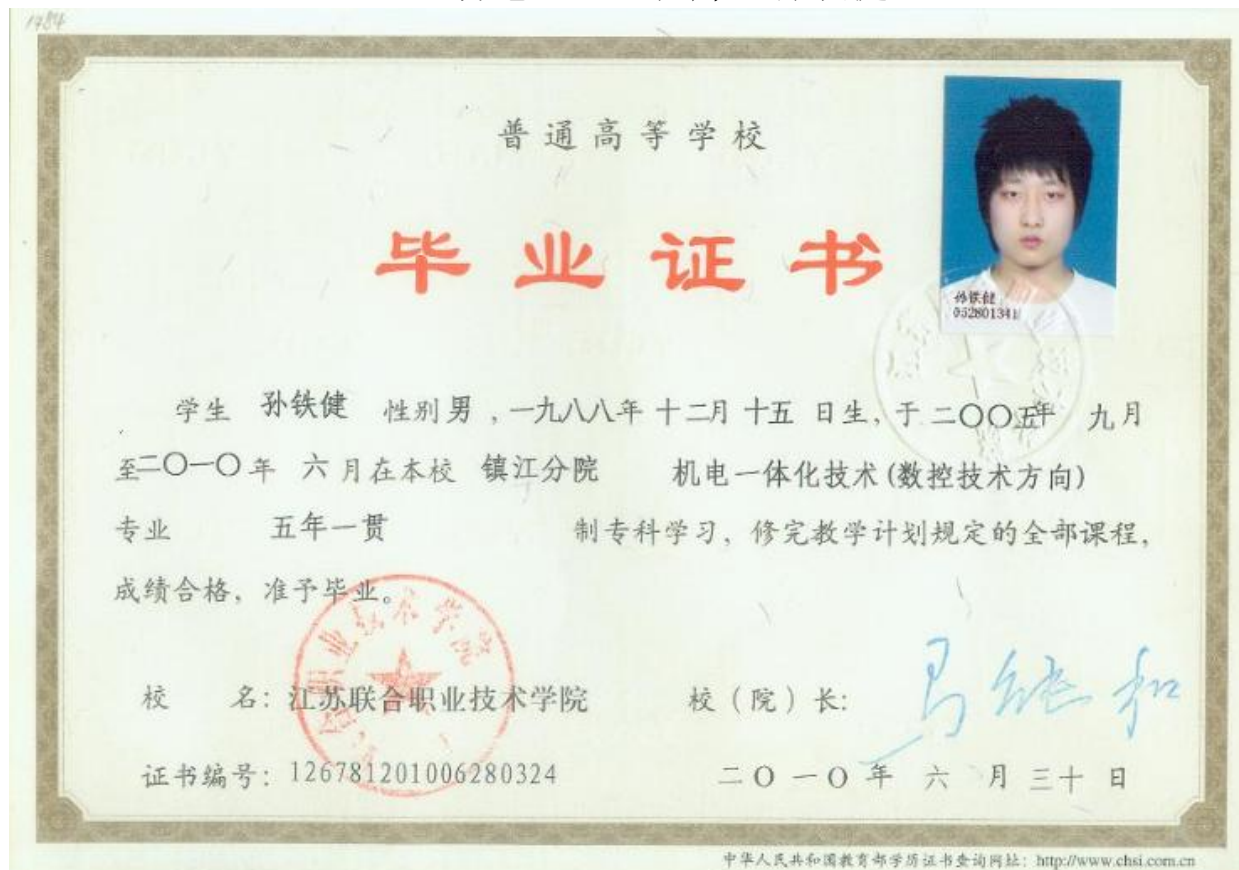 1784
普通高等学校
毕业证书
孙铁健
052801341
学生 孙铁健 性别 男 ，一九八八年 十二月 十五 日生，于 二〇〇五年 九月
至二〇一〇年 六月在本校 镇江分院 机电一体化技术(数控技术方向)
专业 五年一贯 制专科学习、修完教学计划规定的全部课程，
成绩合格，准予毕业。
校 名：江苏联合职业技术学院 校（院）长：马继和
证书编号：126781201006280324 二〇一〇年 六 月 三十 日
中华人民共和国教育部学历证书查询网址：http://www.chsi.com.cn